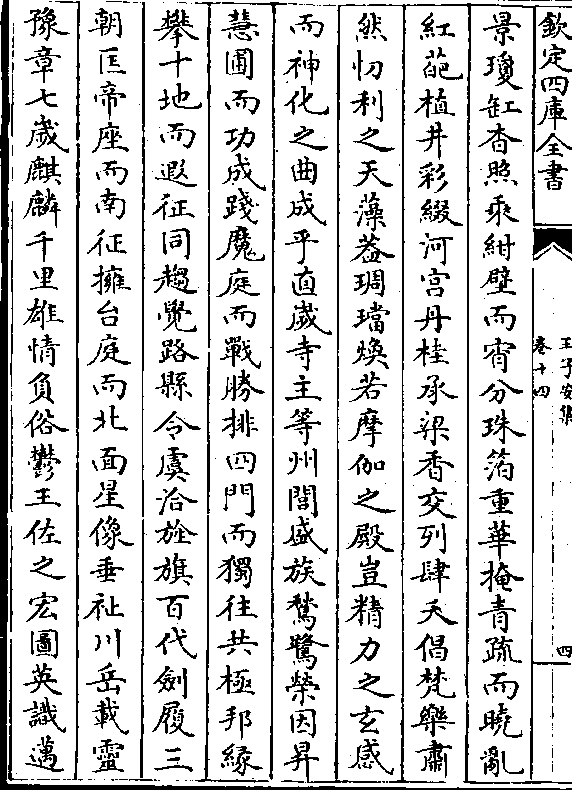 欽定四庫全書
王子安集
卷十四
四
景瓊缸杳照乘紺壁而宵分珠箔重華掩青疏而曉亂
紅葩植井彩綴河宫丹桂承梁香交列肆天倡梵樂肅
然忉利之天藻葢琱璫煥若摩伽之殿豈精力之玄感
而神化之曲成乎直歲寺主等州閭盛族鶖鷺榮因昇
慧圃而功成踐魔庭而戰勝排四門而獨往共極邦緣
攀十地而遐征同趨覺路縣令虞洽旌旗百代劍履三
朝匡帝座而南征擁台庭而北面星像垂祉川岳載靈
豫章七歲麒麟千里雄情負俗鬱王佐之宏圖英識邁